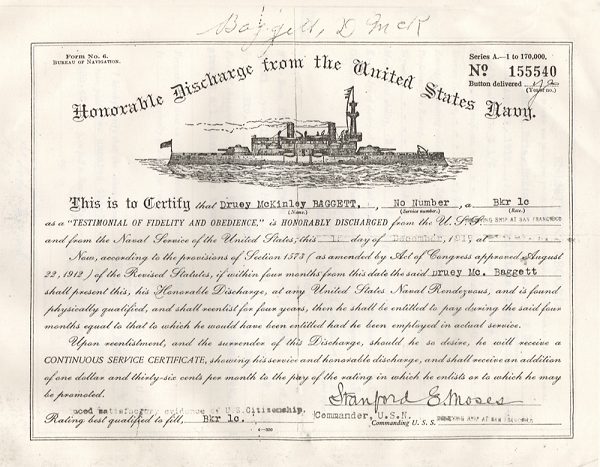 Baggett, D McK
Form No. 6.
Bureau of Navigation.
Series A.—1 to 170,000.
No 155540
Button delivered yes
(Yes or no.)
Honorable Discharge from the United States Navy.
This is to Certify that Druey McKinley BAGGETT. , No Number , a Bkr 1c
(Name.) (Service number.) (Rate.)
as a "TESTIMONIAL OF FIDELITY AND OBEDIENCE," is HONORABLY DISCHARGED from the U. S. S. SHIP AT SAN FRANCISCO
and from the Naval Service of the United States, this day of December, 1919 at
Now, according to the provisions of Section 1573 ( as amended by Act of Congress approved August
22, 1912 ) of the Revised Statutes, if within four months from this date the said Druey Mc. Baggett
shall present this, his Honorable Discharge, at any United States Naval Rendezvous, and is found
physically qualified, and shall reenlist for four years, then he shall be entitled to pay during the said four
months equal to that to which he would have been entitled had he been employed in actual service.
Upon reenlistment, and the surrender of this Discharge, should he so desire, he will receive a
CONTINUOUS SERVICE CERTIFICATE, showing his service and honorable discharge, and shall receive an addition
of one dollar and thirty-six cents per month to the pay of the rating in which he enlists or to which he may
be promoted.
Stanford E Moses
satisfactory evidence of U.S. Citizenship.
Commander, U.S.N. SHIP AT SAN FRANCISCO
Rating best qualified to fill, Bkr 1c. Commanding U. S. S.